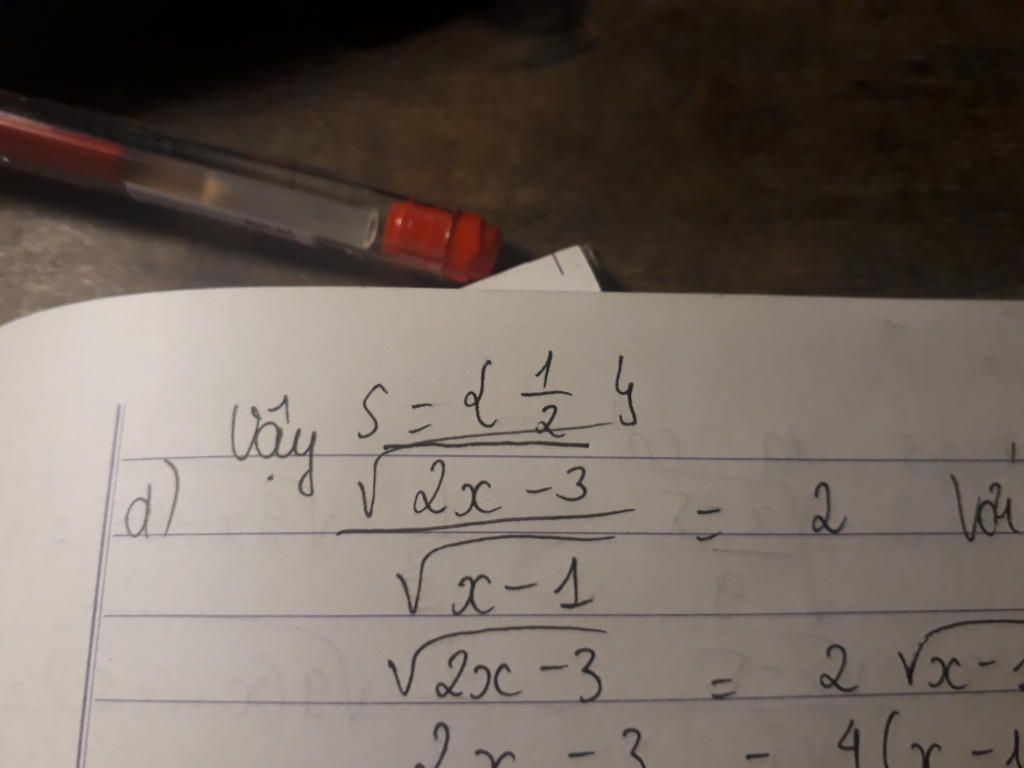 Vậy S = { 1/2 }
d) √(2x - 3) / √(x - 1) = 2 Với
√(2x - 3) = 2 √(x - 1
2x - 3 = 4(x - 1